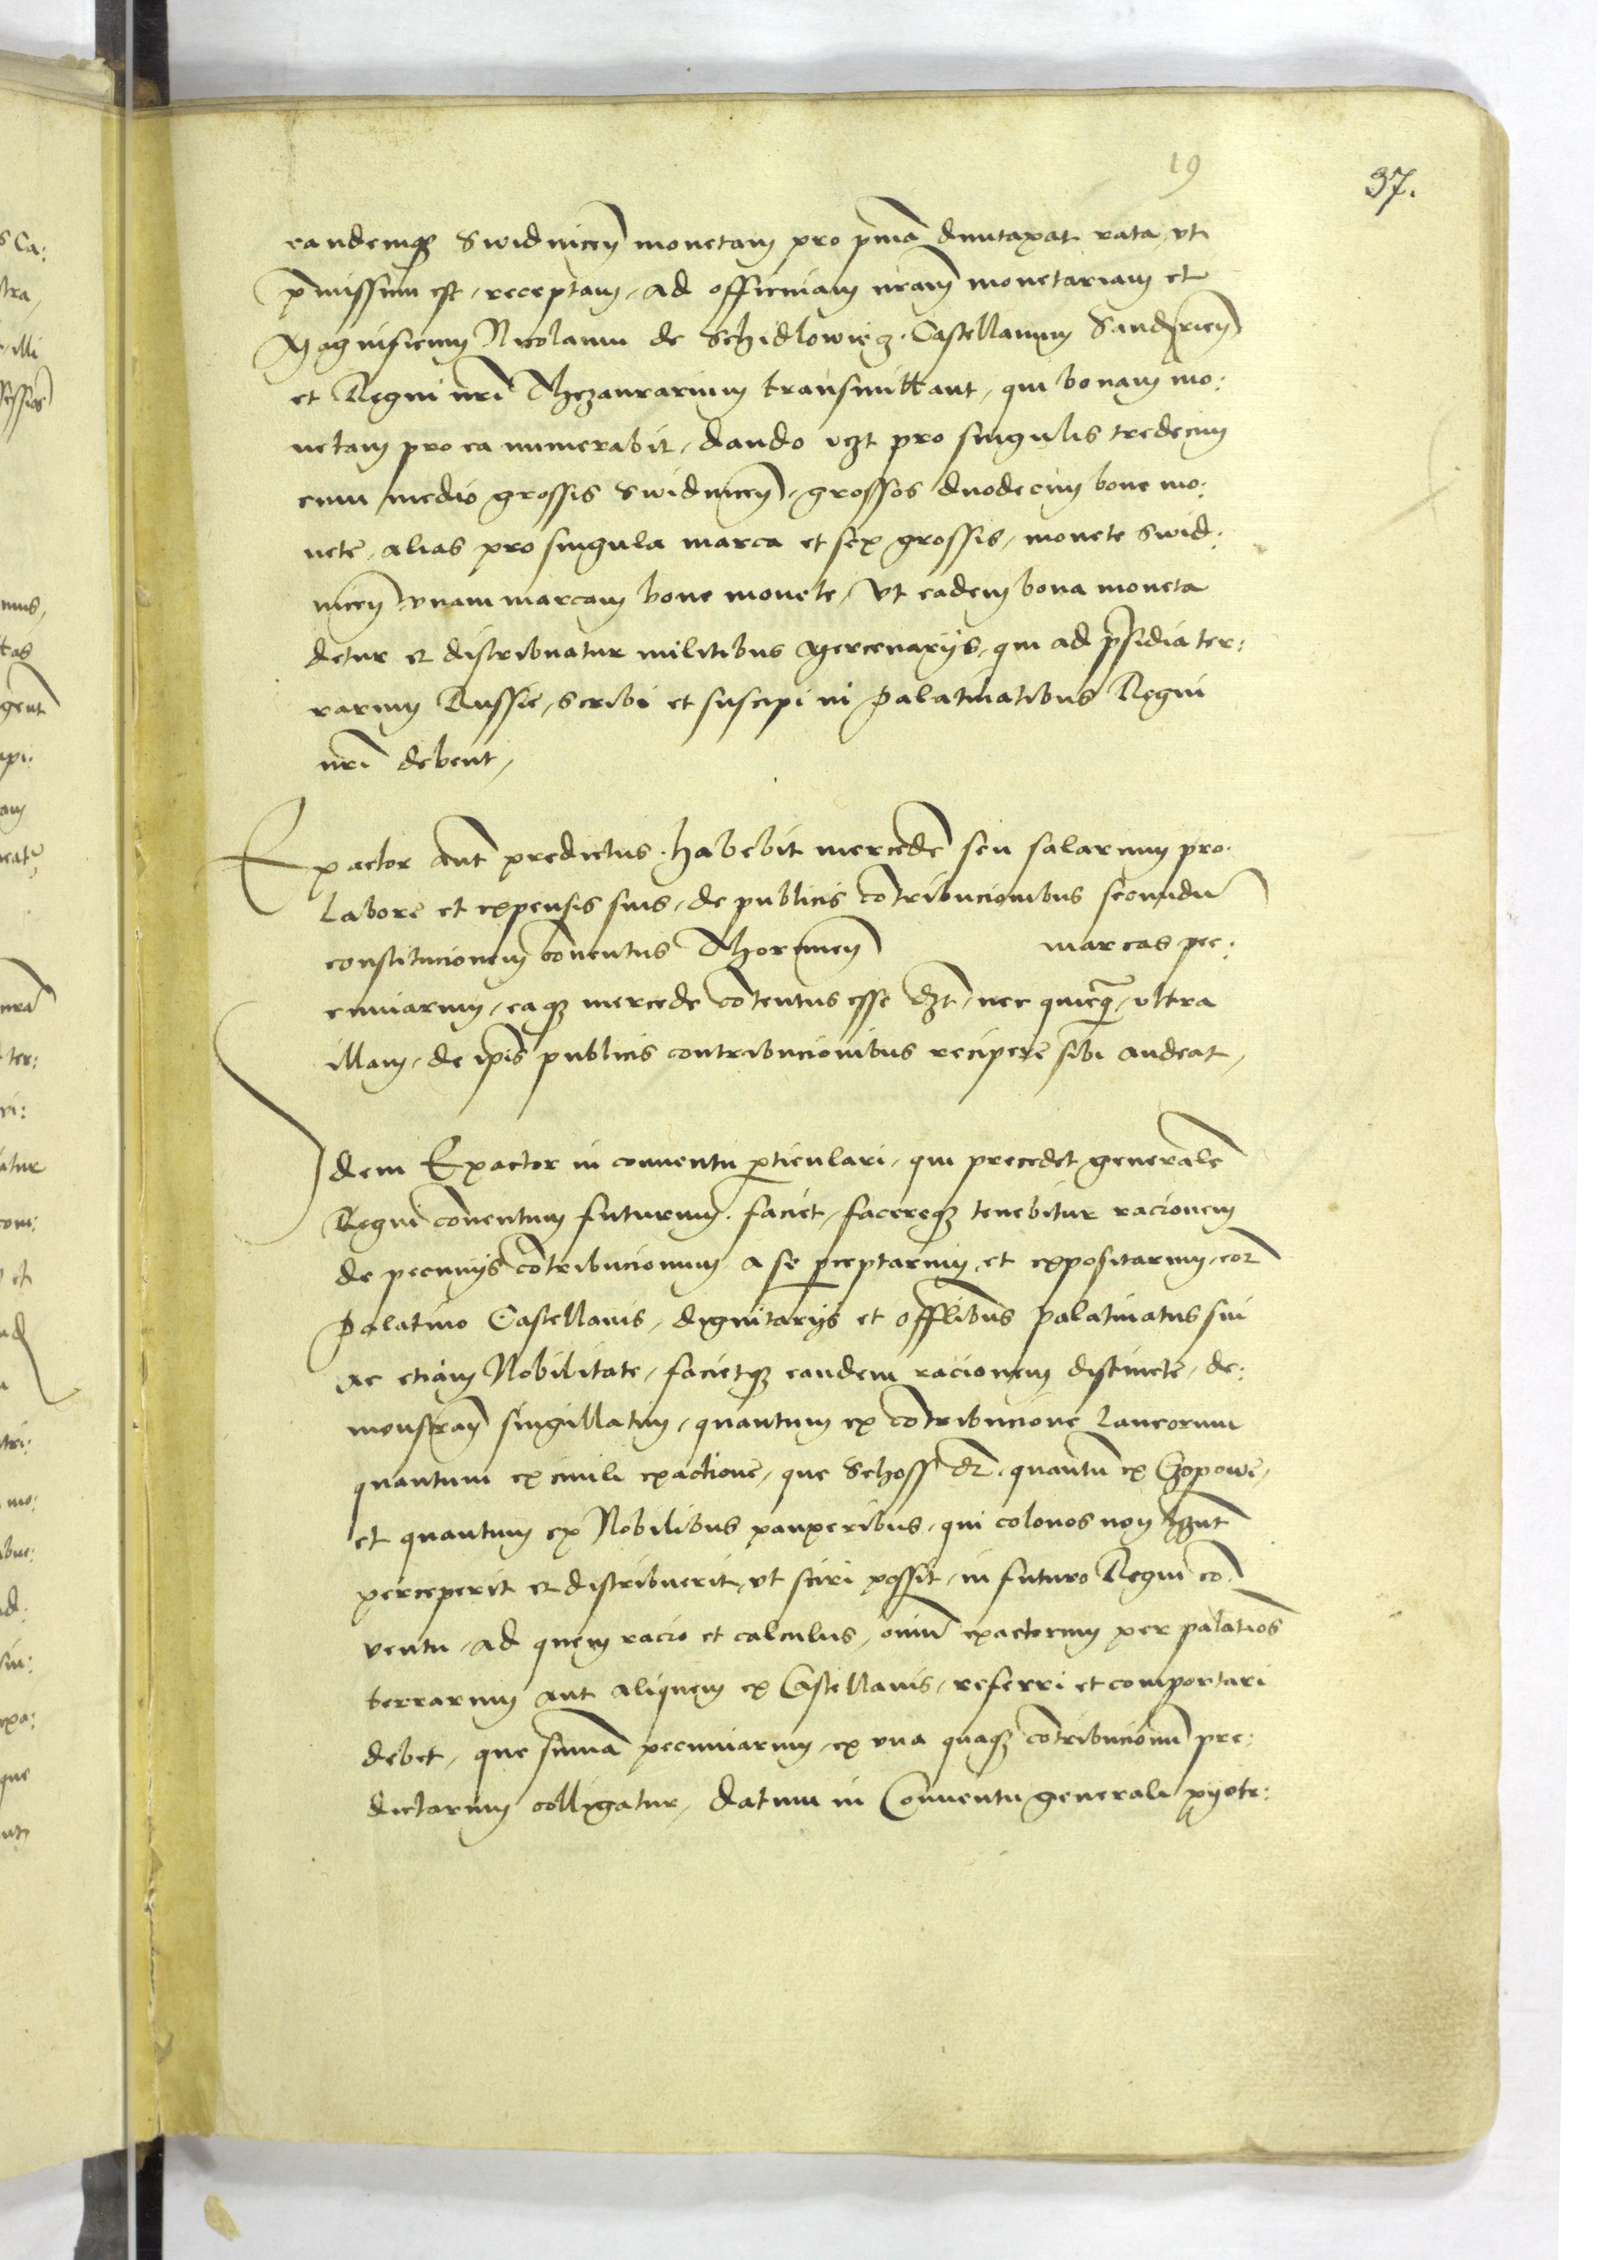 19
37.
eandemq3 Swidnicen̄ monetam pro p̄ma dumtaxat rata, vt
p̄missum est, receptam, ad officinam nr̄am monetariam et
Magnificum Nicolaum de Schidlowiecz Castellanum Sandomirien̄
et Regni nrī Thezaurarium transmittant, qui bonam mo:
netam pro ea numerabit, dando vꝫt pro singulis tredecim
cum medio grossis Swidnicen̄, grossos duodecim bone mo:
nete, alias pro singula marca et sex grossis, monete Swid:
nicen̄ vnam marcam bone monete, Vt eadem bona moneta
detur et distribuatur militibus Mercenarijs, qui ad p̄sidia ter:
rarum Russie, scribi et suscipi in Palatinatibus Regni
nrī debent,
Exactor aut̄ predictus habebit mercedē seu salarium pro
labore et expensis suis, de publicis cōtribucionibus secundū
constitucionem cōuentus Thorunien̄ marcas pec:
cuniarum, eaq3 mercede cōtentus esse dꝫt, nec quicq̄, vltra
illam, de ip̄is publicis contribucionibus recipere sibi audeat,
Idem Exactor in conuentu p̄ticulari, qui precedet generalē
Regni cōuentum futurum, faciet, facereq3 tenebitur racionem
de pecunijs cōtribucionum a se perceptarum, et expositarum, cor̄
Palatino Castellanis, dignitarijs et offlibus palatinatus sui
ac etiam Nobilitate, facietq3 eandem racionem distincte, de:
monstran̄ singillatim, quantum ex cōtribucione laneorum
quantum ex ciuili exactione, que Schoss dr̄, quantū ex Czopowe,
et quantum ex Nobilibus pauperibus, qui colonos non hn̄t
perceperit et distribuerit, vt sciri possit, in futuro Regni cō
uentu, ad quem racio et calculus, om̄iū exactorum per palatīos
terrarum aut aliquem ex Castellanis, referri et comportari
debet, que sum̄a pecuniarum, ex vna quaq3 cōtribucionū pre:
dictarum colligatur, datum in Conuentu generali pyotr: